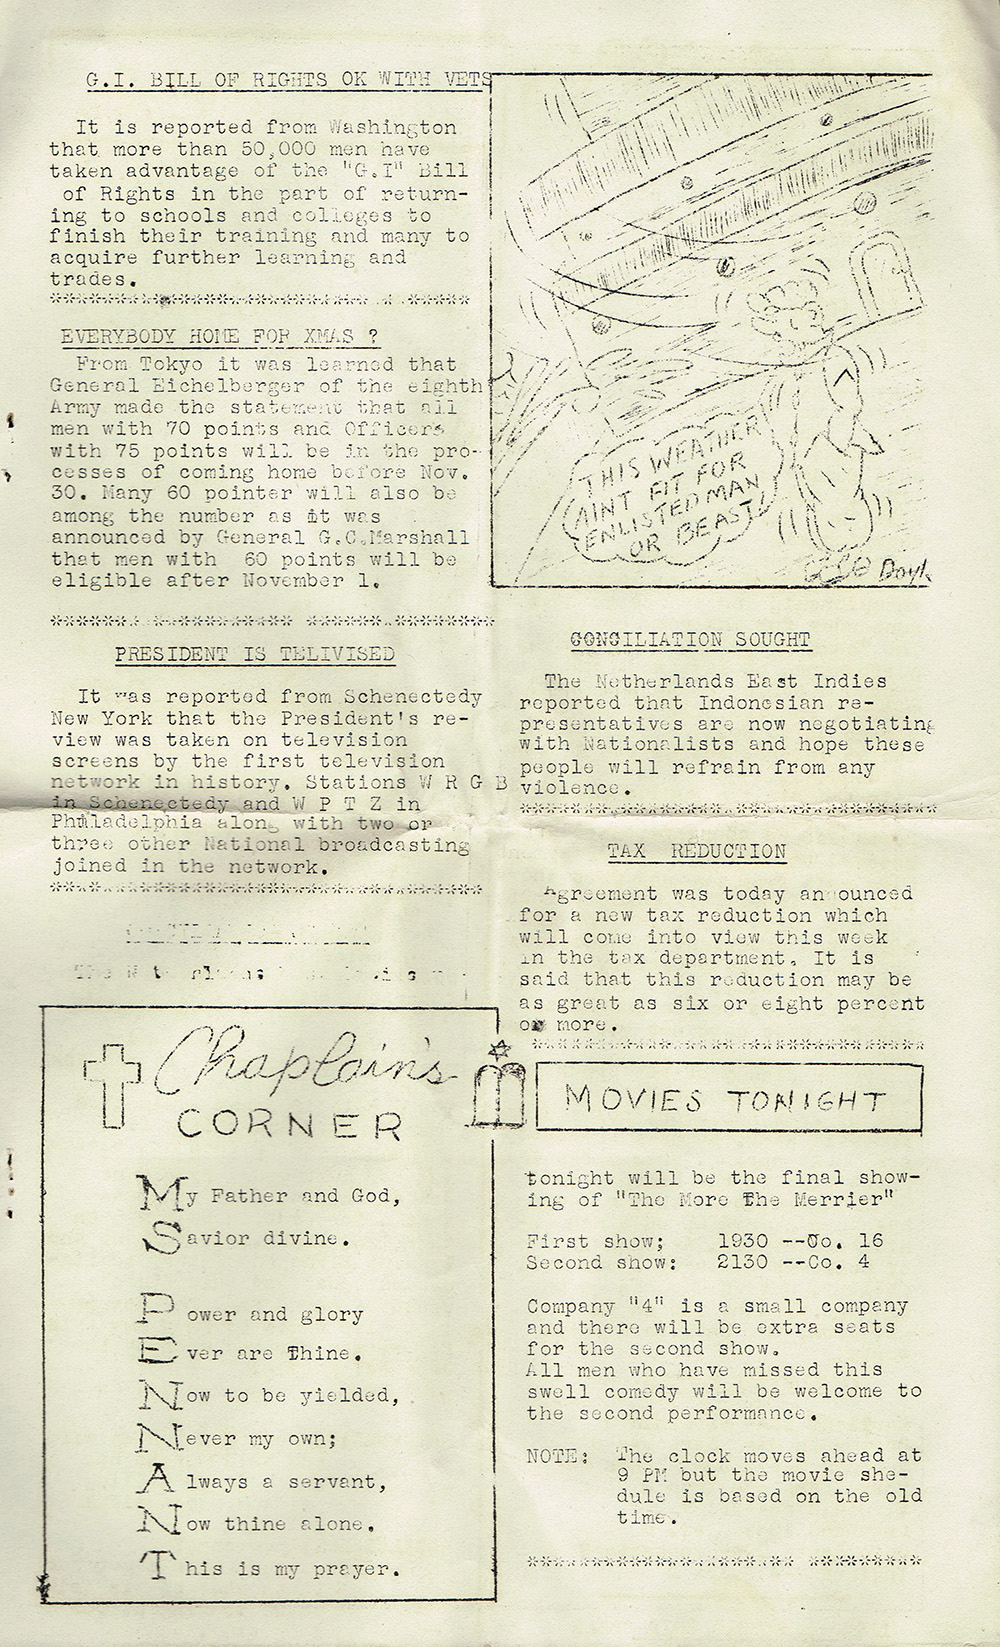 G.I. BILL OF RIGHTS OK WITH VETS
It is reported from Washington
that more than 50,000 men have
taken advantage of the "G.I" Bill
of Rights in the part of return-
ing to schools and colleges to
finish their training and many to
acquire further learning and
trades.
EVERYBODY HOME FOR XMAS ?
From Tokyo it was learned that
General Eichelberger of the eighth
Army made the statement that all
men with 70 points and Officers
with 75 points will be in the pro-
cesses of coming home before Nov.
30. Many 60 pointer will also be
among the number as it was
announced by General G.C.Marshall
that men with 60 points will be
eligible after November 1.
PRESIDENT IS TELIVISED
It was reported from Schenectedy
New York that the President's re-
view was taken on television
screens by the first television
network in history. Stations W R G B
in Schenectedy and W P T Z in
Philadelphia along with two or
three other National broadcasting
joined in the network.
Chaplain's
CORNER
My Father and God,
Savior divine.
Power and glory
Ever are Thine.
Now to be yielded,
Never my own;
Always a servant,
Now thine alone.
This is my prayer.
THIS WEATHER
AINT FIT FOR
ENLISTED MAN
OR BEAST!
Doyle
CONCILIATION SOUGHT
The Netherlands East Indies
reported that Indonesian re-
presentatives are now negotiating
with Nationalists and hope these
people will refrain from any
violence.
TAX REDUCTION
Agreement was today announced
for a new tax reduction which
will come into view this week
in the tax department. It is
said that this reduction may be
as great as six or eight percent
or more.
MOVIES TONIGHT
tonight will be the final show-
ing of "The More The Merrier"
First show; 1930 --Co. 16
Second show: 2130 --Co. 4
Company "4" is a small company
and there will be extra seats
for the second show.
All men who have missed this
swell comedy will be welcome to
the second performance.
NOTE: The clock moves ahead at
9 PM but the movie she-
dule is based on the old
time.